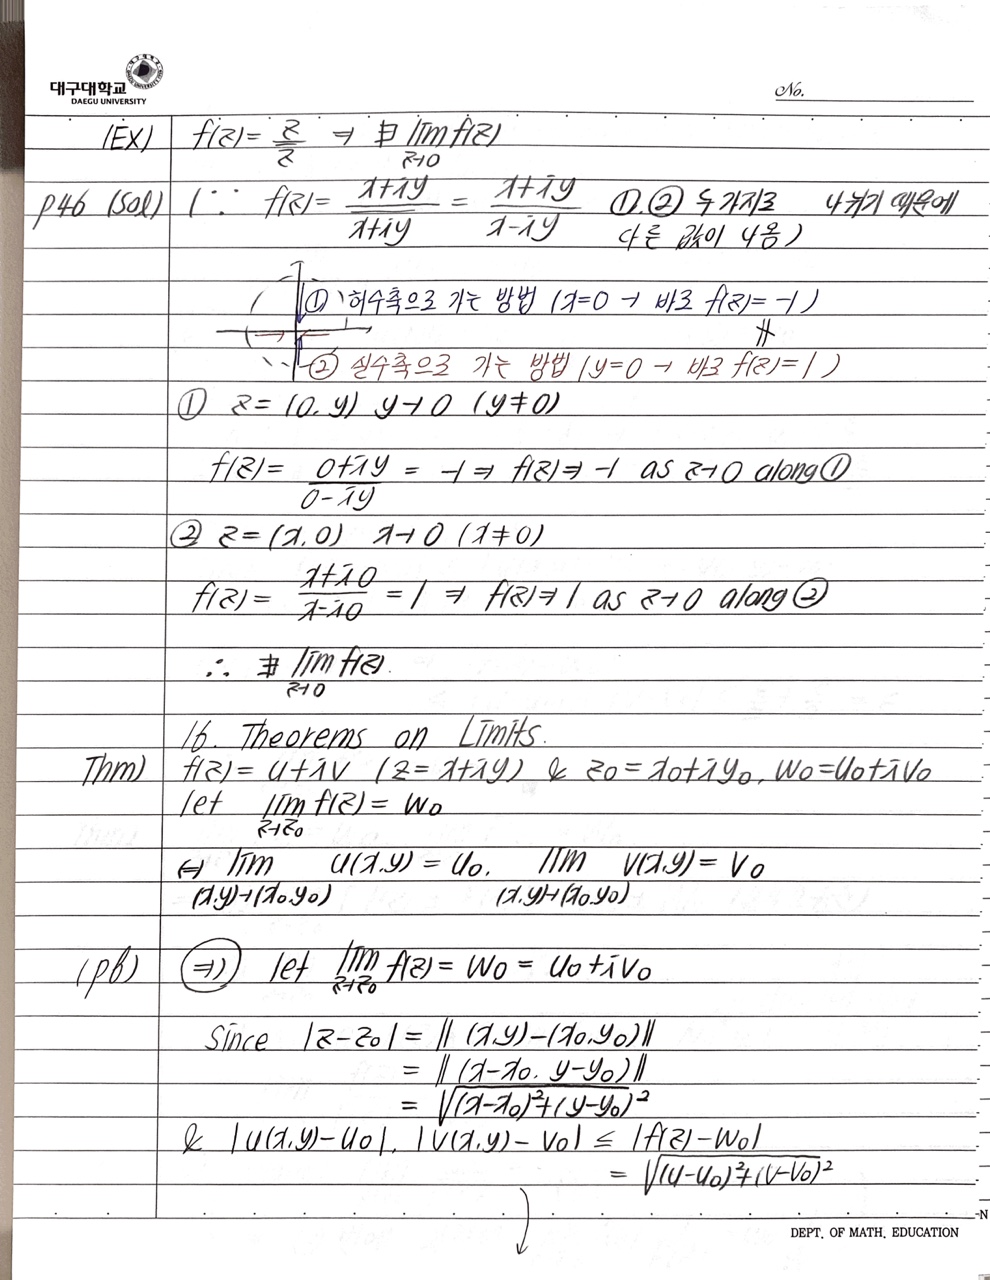 대구대학교
DAEGU UNIVERSITY
No.
(Ex) f(z) = z/z̅ ⇒ ∄ lim_{z→0} f(z)
p46 (sol) (∵ f(z) = (x+iy)/(x̅+̅i̅y̅) = (x+iy)/(x-iy) ①.② 두가지로 나뉘기 때문에
다른 값이 나옴)
① 허수축으로 가는 방법 (x=0 → 바로 f(z)= -1)
∦
② 실수축으로 가는 방법 (y=0 → 바로 f(z)=1)
① z = (0, y) y→0 (y≠0)
f(z) = (0+iy)/(0-iy) = -1 ⇒ f(z) ⇒ -1 as z→0 along ①
② z = (x, 0) x→0 (x≠0)
f(z) = (x+i0)/(x-i0) = 1 ⇒ f(z) ⇒ 1 as z→0 along ②
∴ ∄ lim_{z→0} f(z).
16. Theorems on Limits.
Thm) f(z) = u+iv (z = x+iy) & z₀ = x₀+iy₀, w₀ = u₀+iv₀
let lim_{z→z₀} f(z) = w₀
⇔ lim_{(x,y)→(x₀,y₀)} u(x,y) = u₀. lim_{(x,y)→(x₀,y₀)} v(x,y) = v₀
(pf) ⇒) let lim_{z→z₀} f(z) = w₀ = u₀+iv₀
Since |z-z₀| = ‖(x,y)-(x₀,y₀)‖
= ‖(x-x₀, y-y₀)‖
= √((x-x₀)²+(y-y₀)²)
& |u(x,y)-u₀|, |v(x,y)-v₀| ≤ |f(z)-w₀|
= √((u-u₀)²+(v-v₀)²)
DEPT. OF MATH. EDUCATION